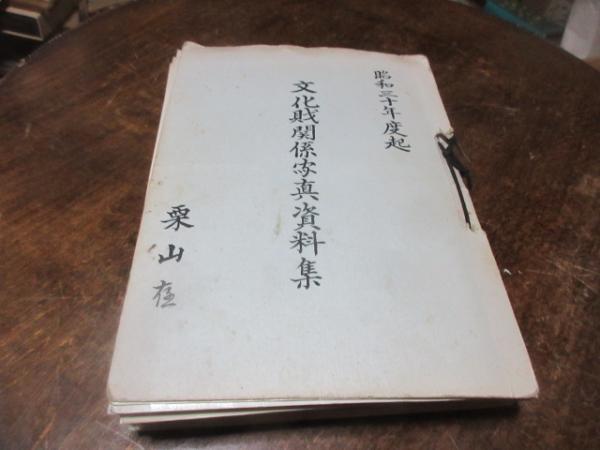 昭和三十年度起
文化財関係写真資料集
栗山